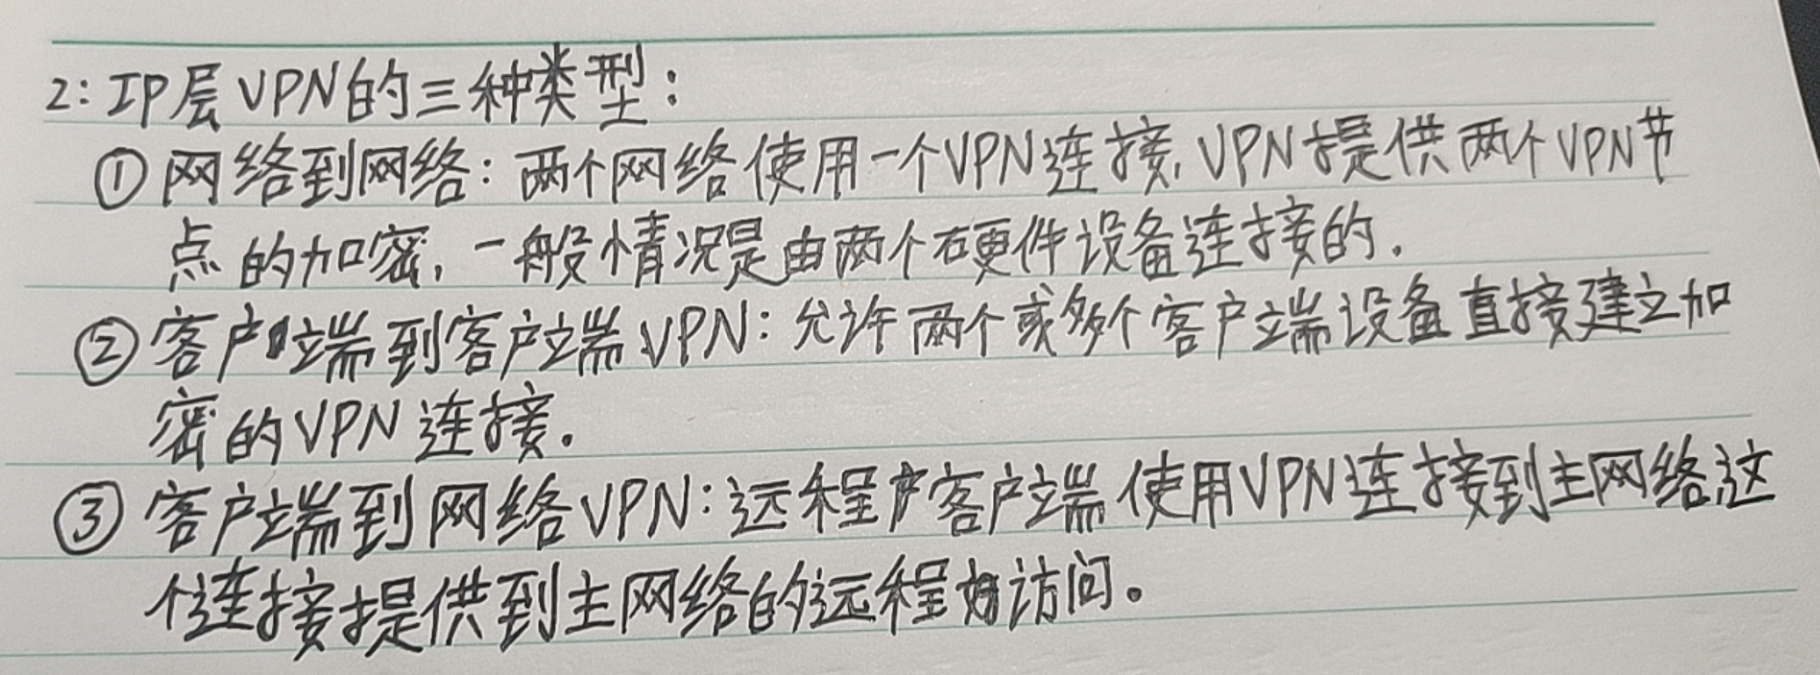 2：IP层VPN的三种类型：
①网络到网络：两个网络使用一个VPN连接，VPN提供两个VPN节
点的加密，一般情况是由两个硬件设备连接的．
②客户端到客户端VPN：允许两个或多个客户端设备直接建立加
密的VPN连接．
③客户端到网络VPN：远程客户端使用VPN连接到主网络这
个连接提供到主网络的远程访问。